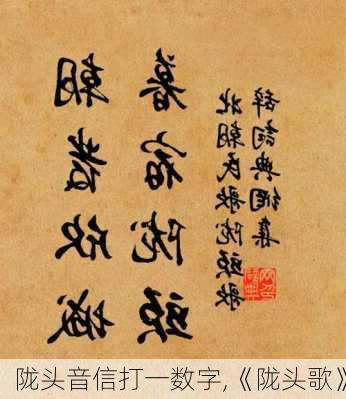 朝發欣城
暮宿陇頭
北朝民歌陇頭歌
辭詞典網集
陇头音信打一数字,《陇头歌》